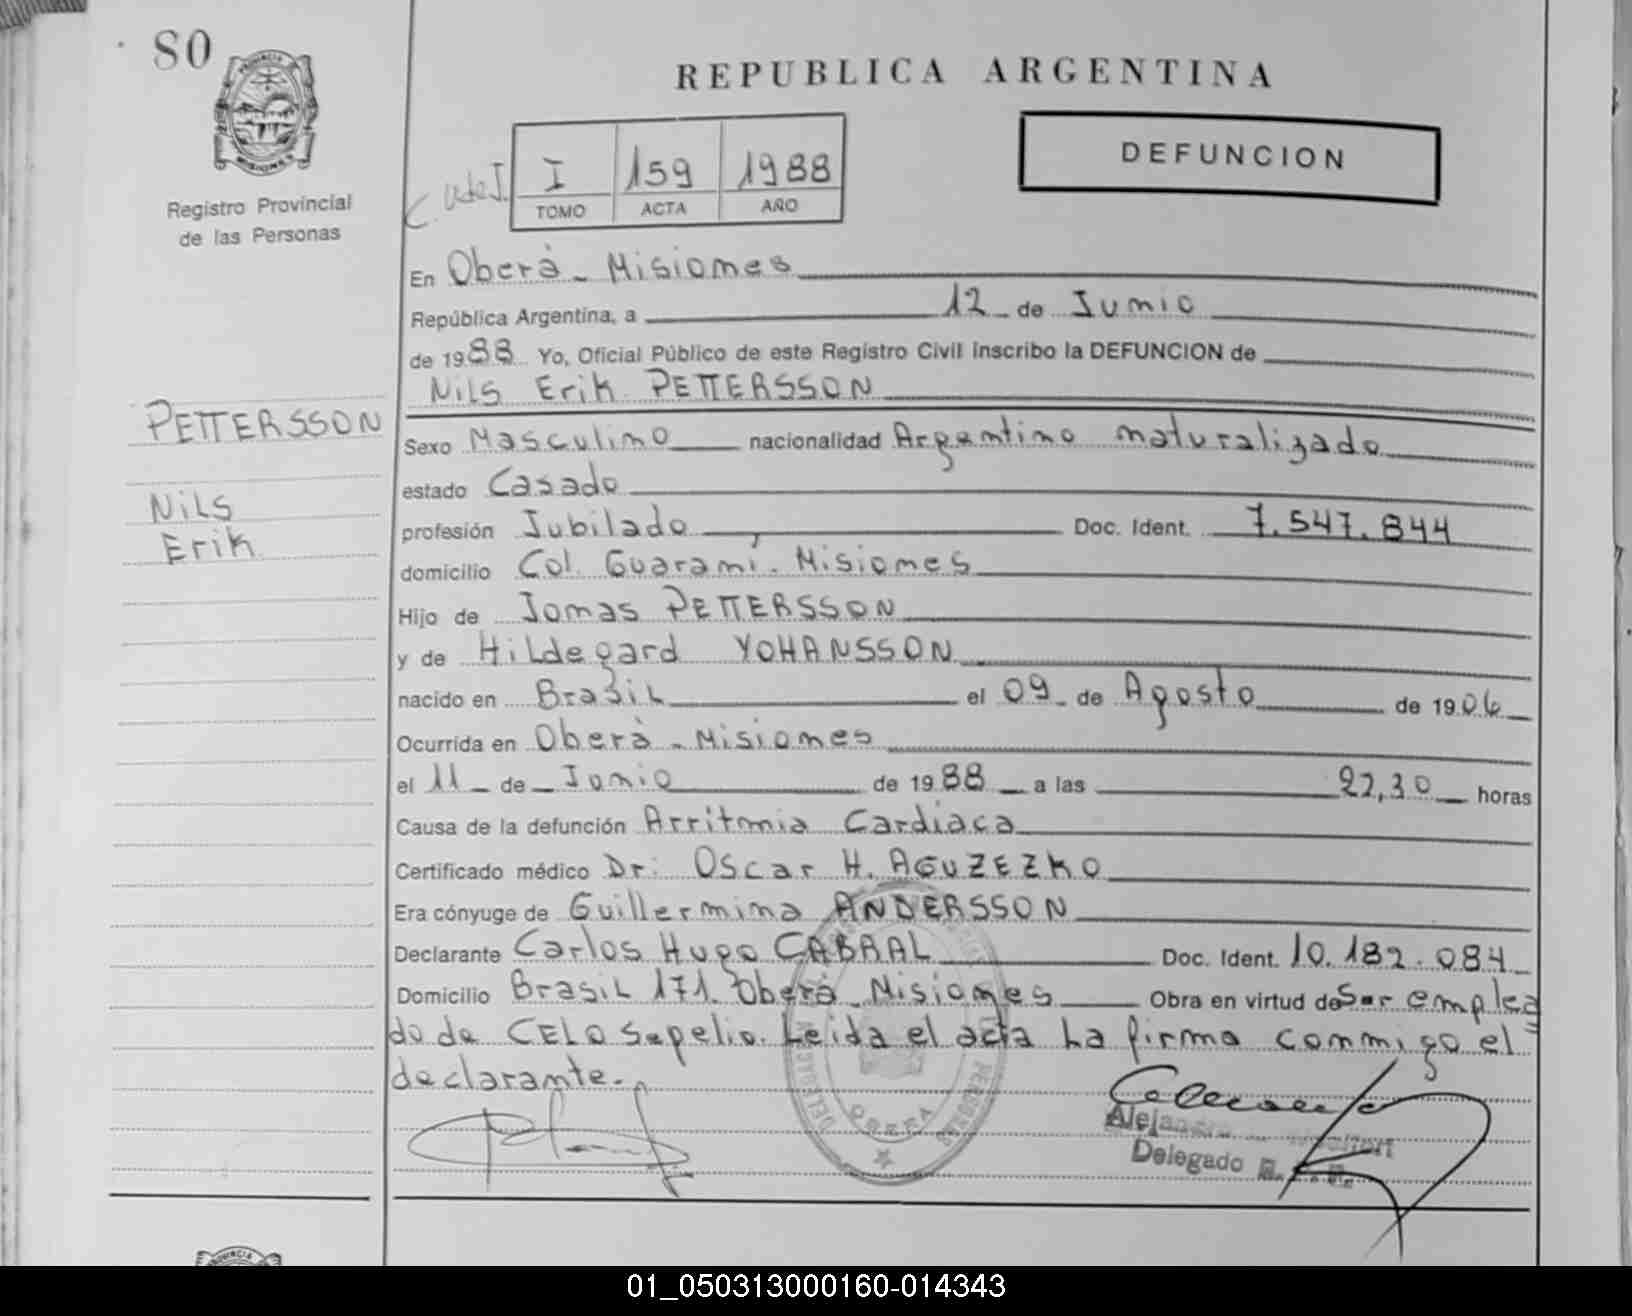 80
PROVINCIA
MISIONES
Registro Provincial
de las Personas
REPUBLICA ARGENTINA
I 159 1988
TOMO ACTA AÑO
DEFUNCION
En Oberà - Misiones
República Argentina, a 12 de Junio
de 1988 Yo, Oficial Público de este Registro Civil inscribo la DEFUNCION de
Nils Erik PETTERSSON
PETTERSSON
Nils
Erik
Sexo Masculino nacionalidad Argentino naturalizado
estado Casado
profesión Jubilado Doc. Ident. 7.547.844
domicilio Col. Guaraní. Misiones
Hijo de Jonas PETTERSSON
y de Hildegard YOHANSSON
nacido en Brasil el 09 de Agosto de 1906
Ocurrida en Oberà - Misiones
el 11 de Junio de 1988 a las 22,30 horas
Causa de la defunción Arritmia Cardiaca
Certificado médico Dr. Oscar H. AGUZEZKO
Era cónyuge de Guillermina ANDERSSON
Declarante Carlos Hugo CABRAL Doc. Ident. 10.182.084
Domicilio Brasil 171. Oberá - Misiones Obra en virtud de Ser emplea
do de CELO Sepelio. Leida el acta la firma conmigo el
declarante.
OBERA
Delegado
PROVINCIA
01_050313000160-014343